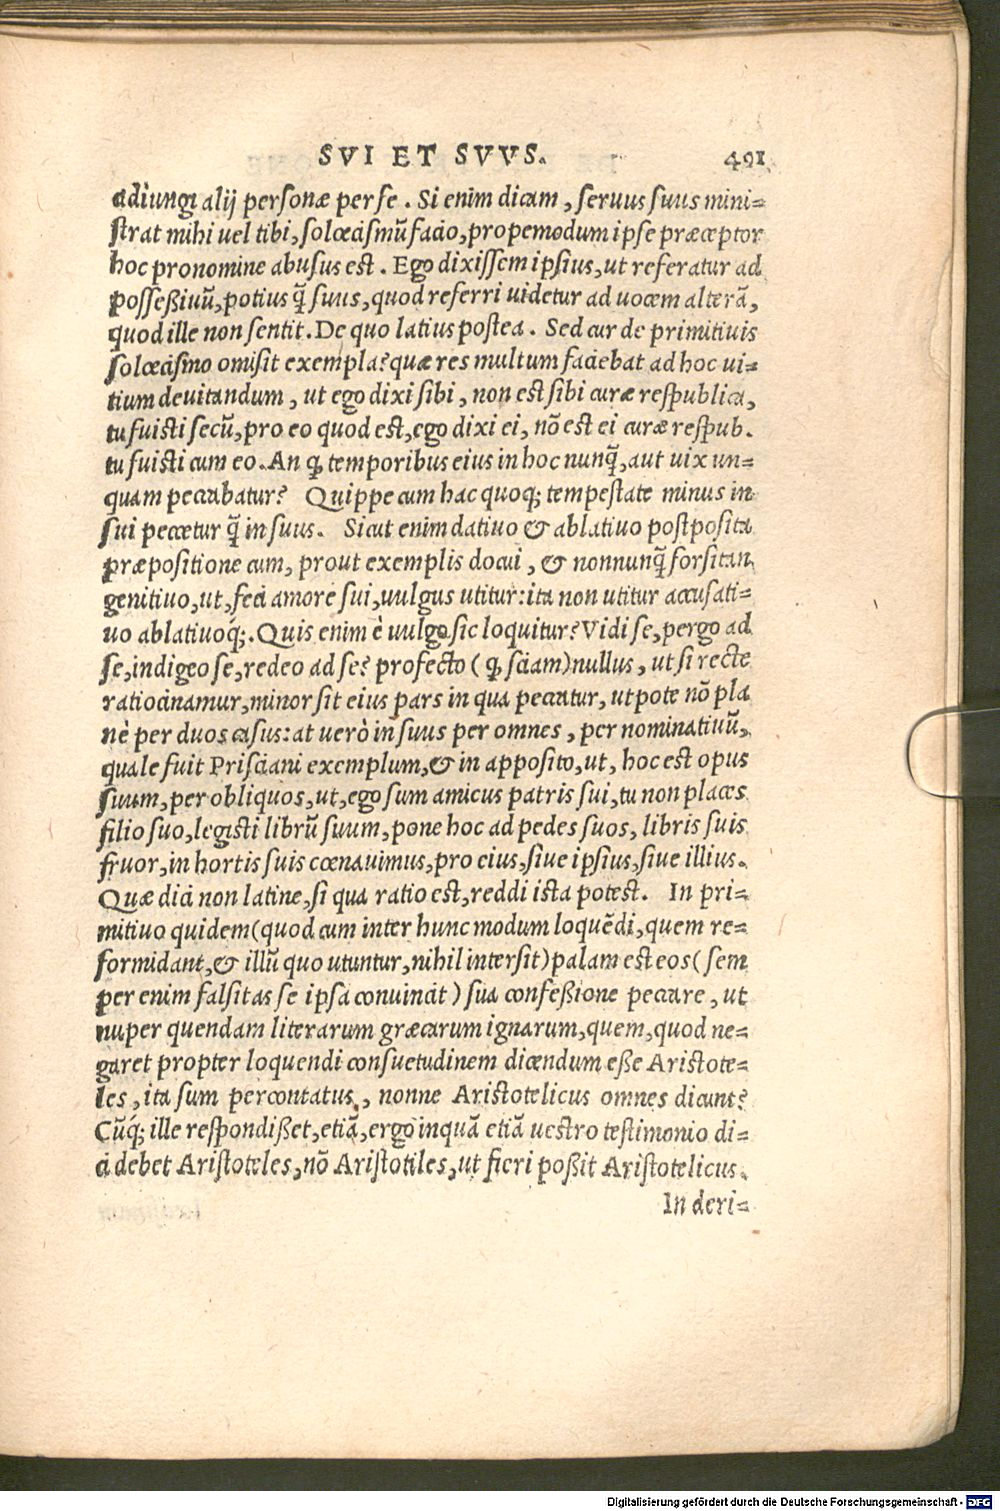 SVI ET SVVS. 491
adiungi alij personæ per se. Si enim dicam, servus suus mini=
strat mihi uel tibi, solœcismũ facio, propemodum ipse præceptor
hoc pronomine abusus est. Ego dixissem ipsius, ut referatur ad
posseßiuũ, potius q̃ suus, quod referri uidetur ad uocem alterã,
quod ille non sentit. De quo latius postea. Sed cur de primitiuis
solœcismo omisit exempla? quæ res multum faciebat ad hoc ui=
tium deuitandum, ut ego dixi sibi, non est sibi curæ respublica,
tu fuisti secũ, pro eo quod est, ego dixi ei, nõ est ei curæ respub.
tu fuisti cum eo. An ꝙ temporibus eius in hoc nunq̃, aut uix un=
quam peccabatur? Quippe cum hac quoq; tempestate minus in
sui peccetur q̃ in suus. Sicut enim datiuo & ablatiuo postposita
præpositione cum, prout exemplis docui, & nonnunq̃ forsitan
genitiuo, ut, feci amore sui, uulgus utitur: ita non utitur accusati=
uo ablatiuoq́;. Quis enim è uulgo sic loquitur? Vidi se, pergo ad
se, indigeo se, redeo ad se? profecto (ꝙ sciam) nullus, ut si recte
ratiocinamur, minor sit eius pars in qua peccatur, utpote nõ pla
nè per duos casus: at uerò in suus per omnes, per nominatiuũ,
quale fuit Prisciani exemplum, & in apposito, ut, hoc est opus
suum, per obliquos, ut, ego sum amicus patris sui, tu non places
filio suo, legisti librũ suum, pone hoc ad pedes suos, libris suis
fruor, in hortis suis cœnauimus, pro eius, siue ipsius, siue illius.
Quæ dici non latine, si qua ratio est, reddi ista potest. In pri=
mitiuo quidem (quod cum inter hunc modum loquẽdi, quem re=
formidant, & illũ quo utuntur, nihil intersit) palam est eos (sem
per enim falsitas se ipsa conuincit) sua confeßione peccare, ut
nuper quendam literarum græcarum ignarum, quem, quod ne=
garet propter loquendi consuetudinem dicendum eße Aristote=
les, ita sum percontatus, nonne Aristotelicus omnes dicunt?
Cũq́; ille respondißet, etiã, ergo inquã etiã uestro testimonio di=
ci debet Aristoteles, nõ Aristotiles, ut fieri poßit Aristotelicus.
In deri=
Digitalisierung gefördert durch die Deutsche Forschungsgemeinschaft - DFG